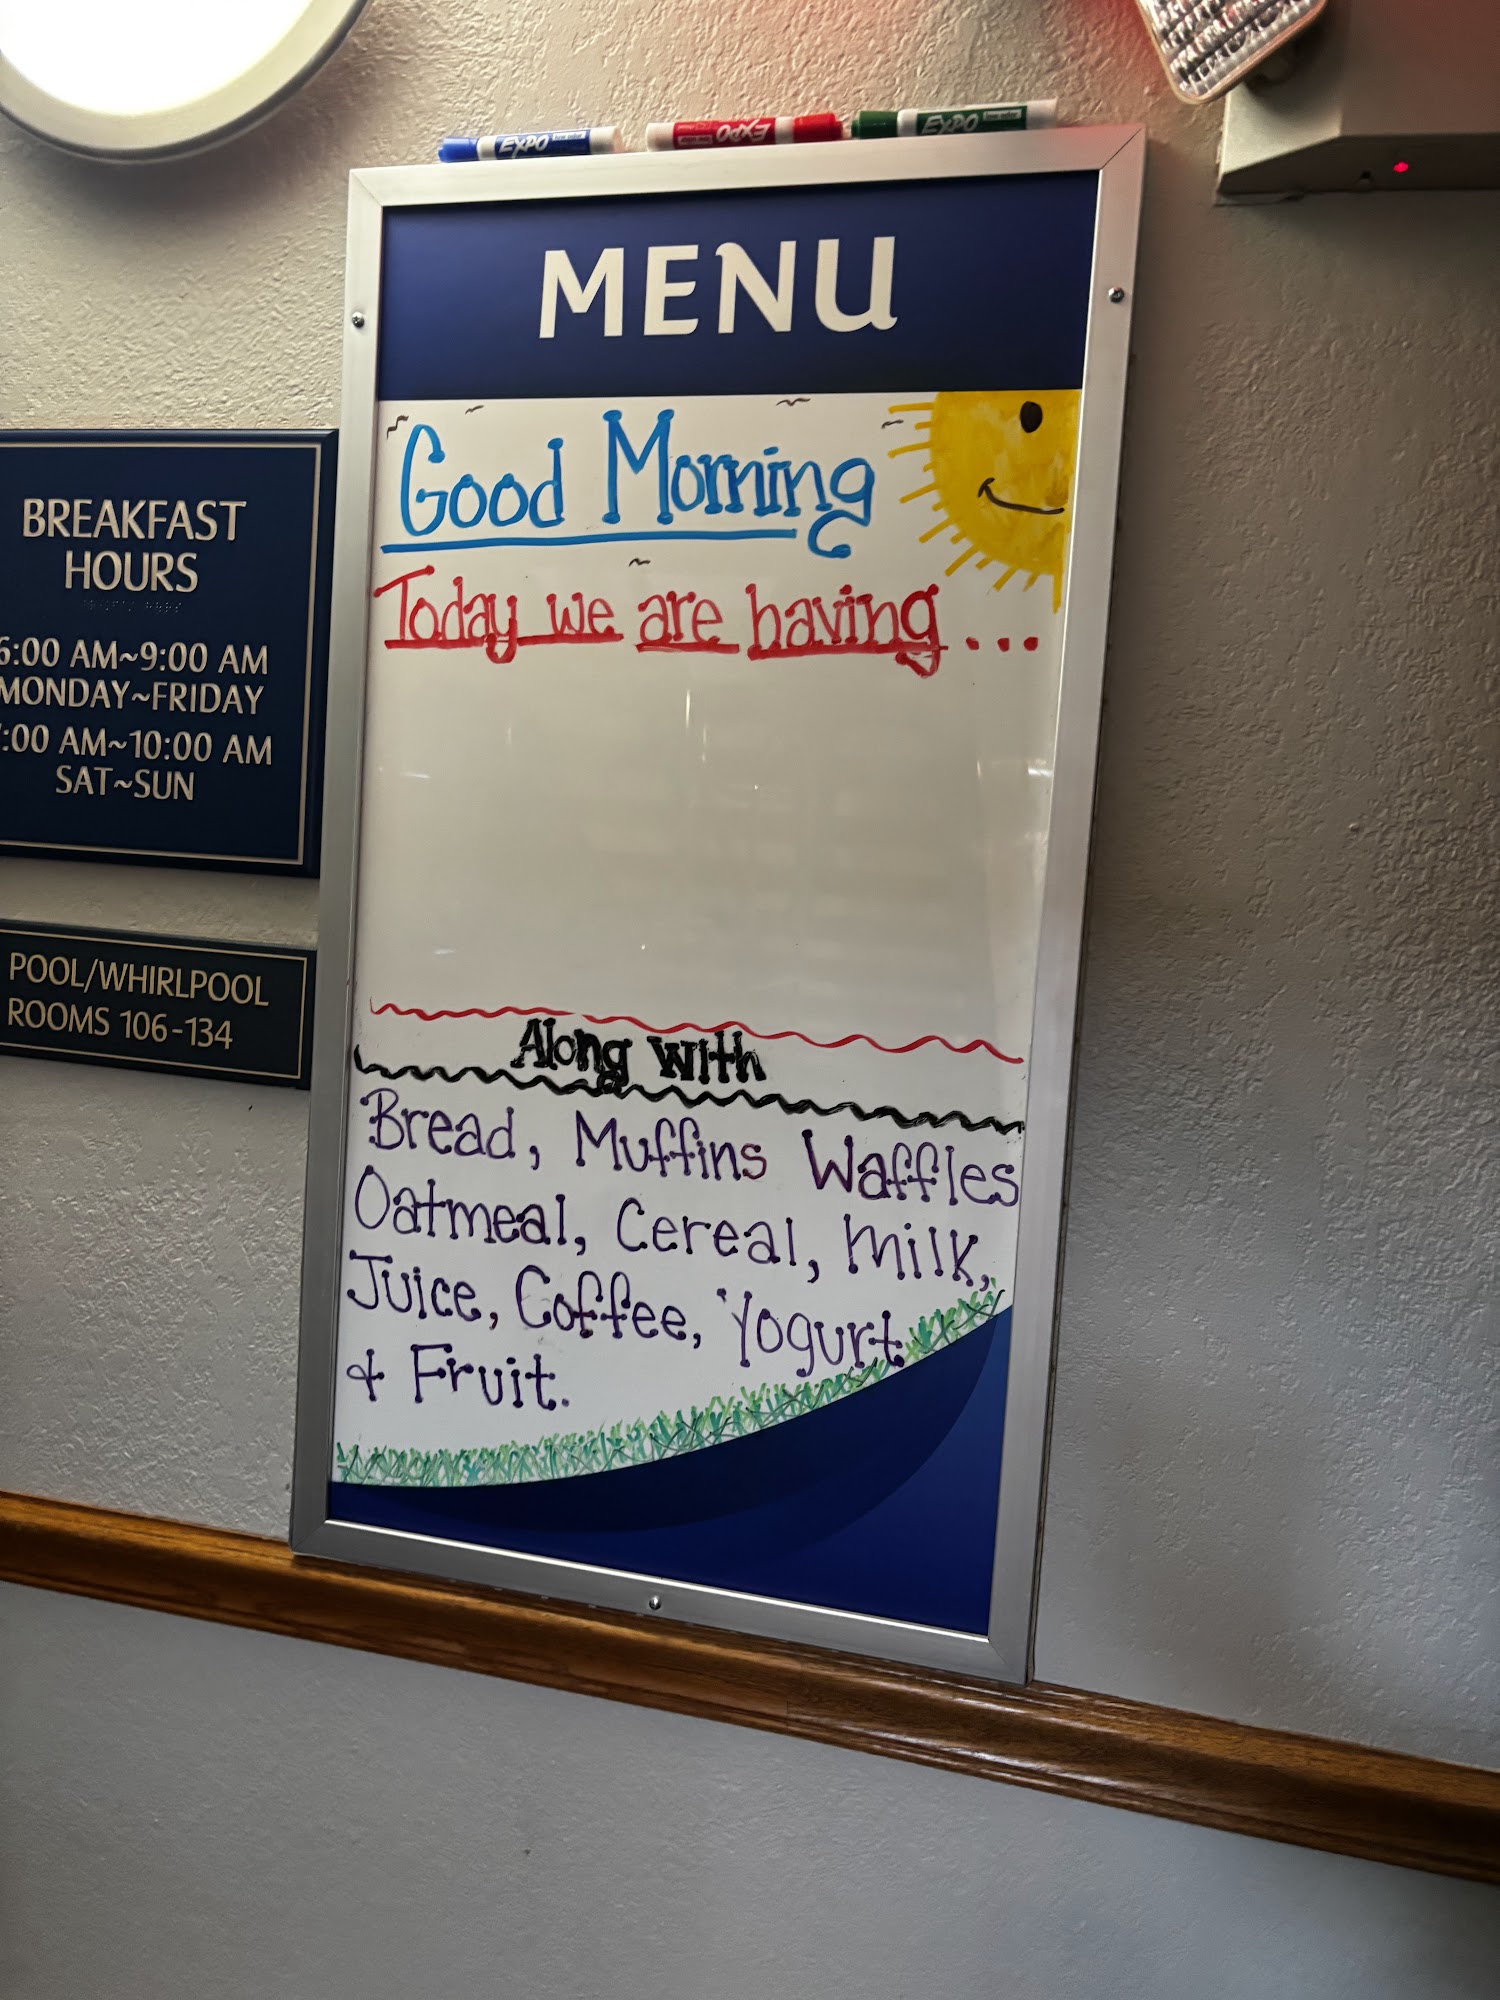 EXPO
EXPO
EXPO
MENU
Good Morning
Today we are having...
Along with
Bread, Muffins Waffles
Oatmeal, Cereal, Milk,
Juice, Coffee, Yogurt
& Fruit.
BREAKFAST
HOURS
6:00 AM~9:00 AM
MONDAY~FRIDAY
:00 AM~10:00 AM
SAT~SUN
POOL/WHIRLPOOL
ROOMS 106-134